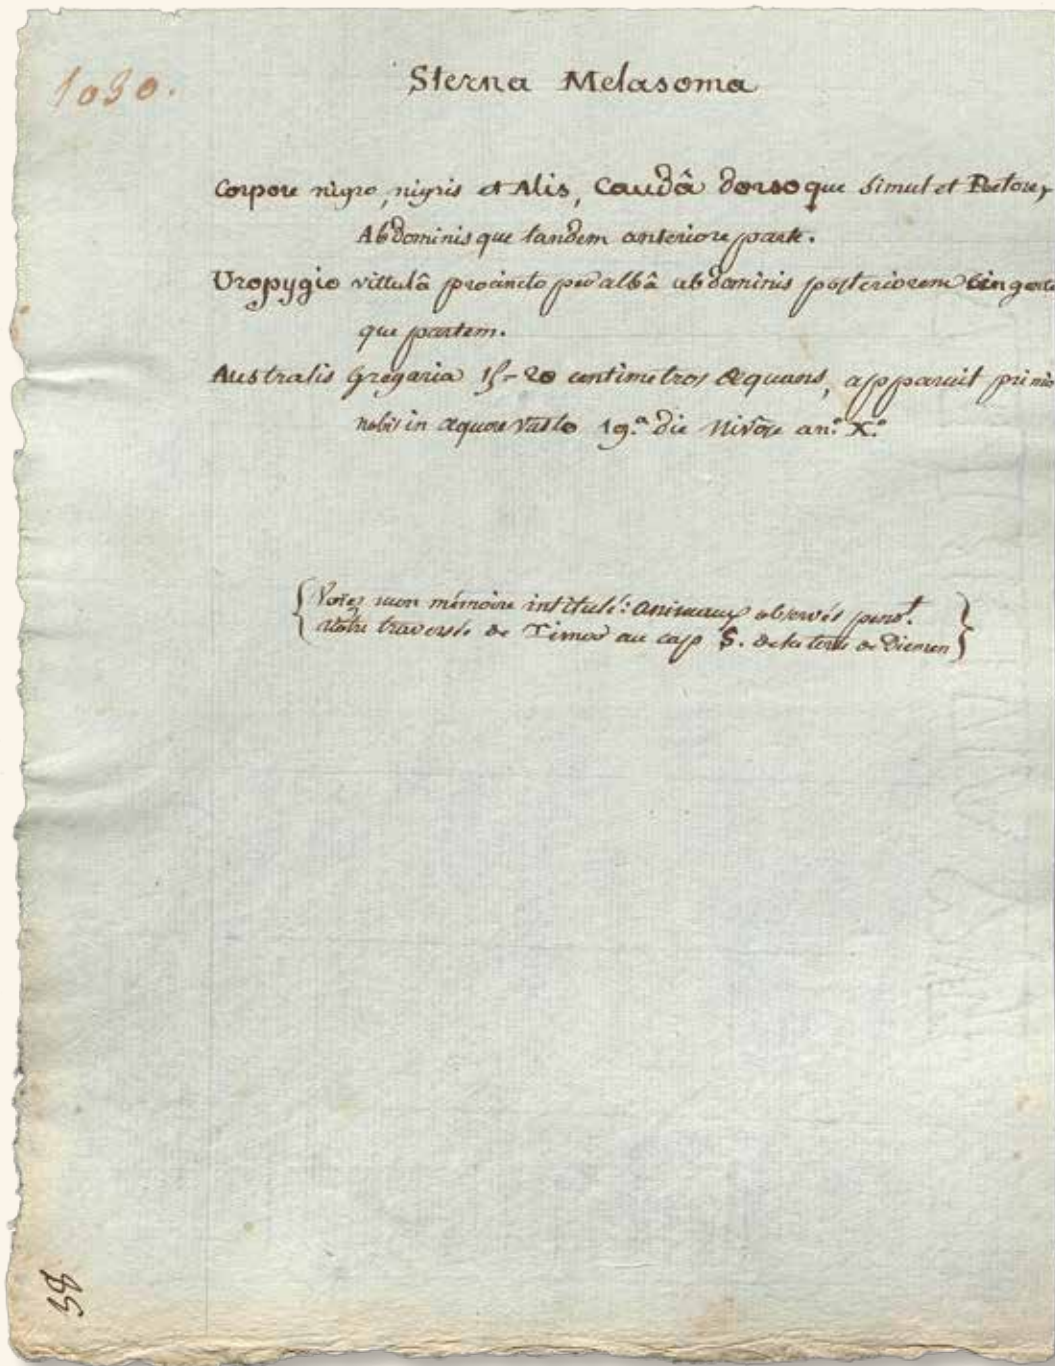 1030.
Sterna Melasoma
Corpore nigro, nigris et Alis, Caudâ dorsoque simul et Pectore,
Abdominisque tandem anteriore parte.
Uropygio vittulâ procincto per albâ abdominis posteriorem cingente
que partem.
Australis Gregaria 15-20 centimetros æquans, apparuit primo
nobis in æquore vasto 19.ª die Nivôse an.º X.º
{Voÿez mon mémoire intitulé: animaux observés pend.t
notre traversée de Timor au cap S. de la terre de Diemen}
38